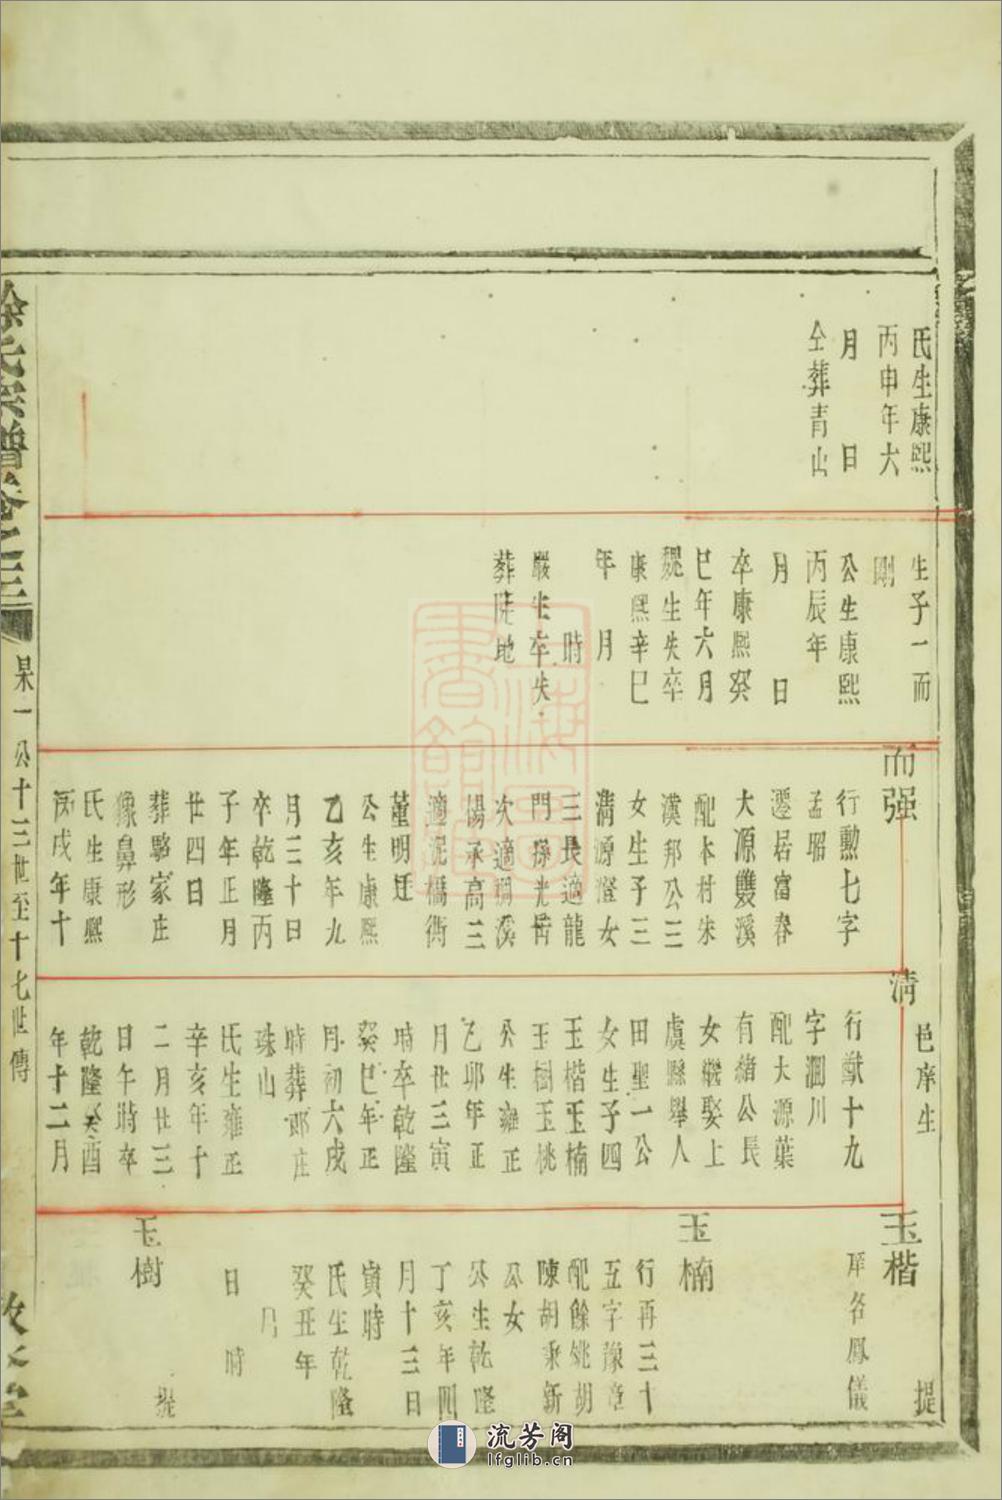 氏生康熙
丙申年六
月　日
仝葬青山
生子一而
剛
公生康熙
丙辰年
月　日
卒康熙癸
巳年六月
魏生失卒
康熙辛巳
年　月
時
嚴生卒失
葬陡地
而强
行勲七字
孟昭
遷居富春
大源雙溪
配本村朱
漢邦公三
女生子三
清源澄女
三長適龍
門孫光
次適琱溪
楊承高三
適泥橋衖
董明廷
公生康熙
乙亥年九
月三十日
卒乾隆丙
子年正月
廿四日
葬駱家庄
像鼻形
氏生康熙
丙戌年十
清
邑庠生
行猷十九
字澗川
配大源葉
有緒公長
女繼娶上
虞縣舉人
田聖一公
女生子四
玉楷玉楠
玉樹玉桃
公生雍正
乙卯年正
月廿三寅
時卒乾隆
癸巳年正
月初六戌
時葬郎庄
珠山
氏生雍正
辛亥年十
二月廿三
日午時卒
乾隆癸酉
年十二月
玉楷
提
庠名鳳儀
玉楠
行再三十
五字豫章
配餘姚胡
陳胡秉新
公女
公生乾隆
丁亥年四
月十三日
寅時
氏生乾隆
癸丑年
月
日　時
玉樹
提
徐氏宗譜卷之三
杲一公十三世至十七世傳